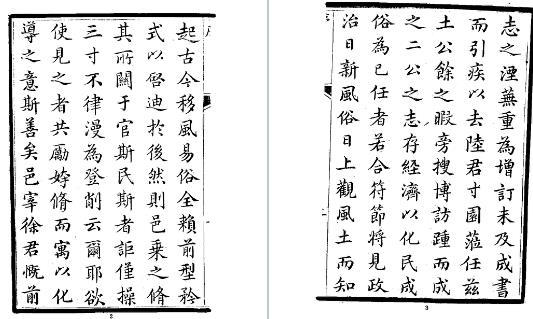 起古今移風易俗全賴前型矜
式以啓迪於後然則邑乘之脩
其所關于官斯民斯者詎僅操
三寸不律漫為登削云爾耶欲
使見之者共勵姱脩而寓以化
導之意斯善矣邑宰徐君慨前
2
志之湮蕪重為增訂未及成書
而引疾以去陸君寸園蒞任茲
土公餘之暇旁搜博訪踵而成
之二公之志存經濟以化民成
俗為已任者若合符節將見政
治日新風俗日上觀風土而知
3